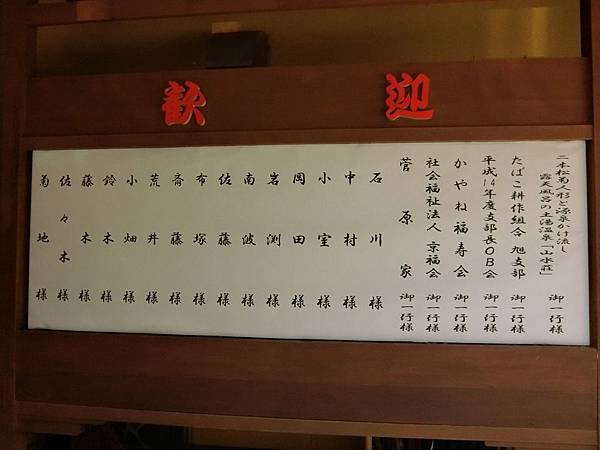 歓迎
二本松菊人形と源泉かけ流し
露天風呂の土湯温泉「山水荘」 御一行様
たばこ耕作組合 旭支部 御一行様
平成14年度支部長OB会 御一行様
かやね福寿会 御一行様
社会福祉法人 京福会 御一行様
菅原家 御一行様
石川様
中村様
小室様
岡田様
岩渕様
南波様
佐藤様
布塚様
斎藤様
荒井様
小畑様
鈴木様
藤木様
佐々木様
菊地様